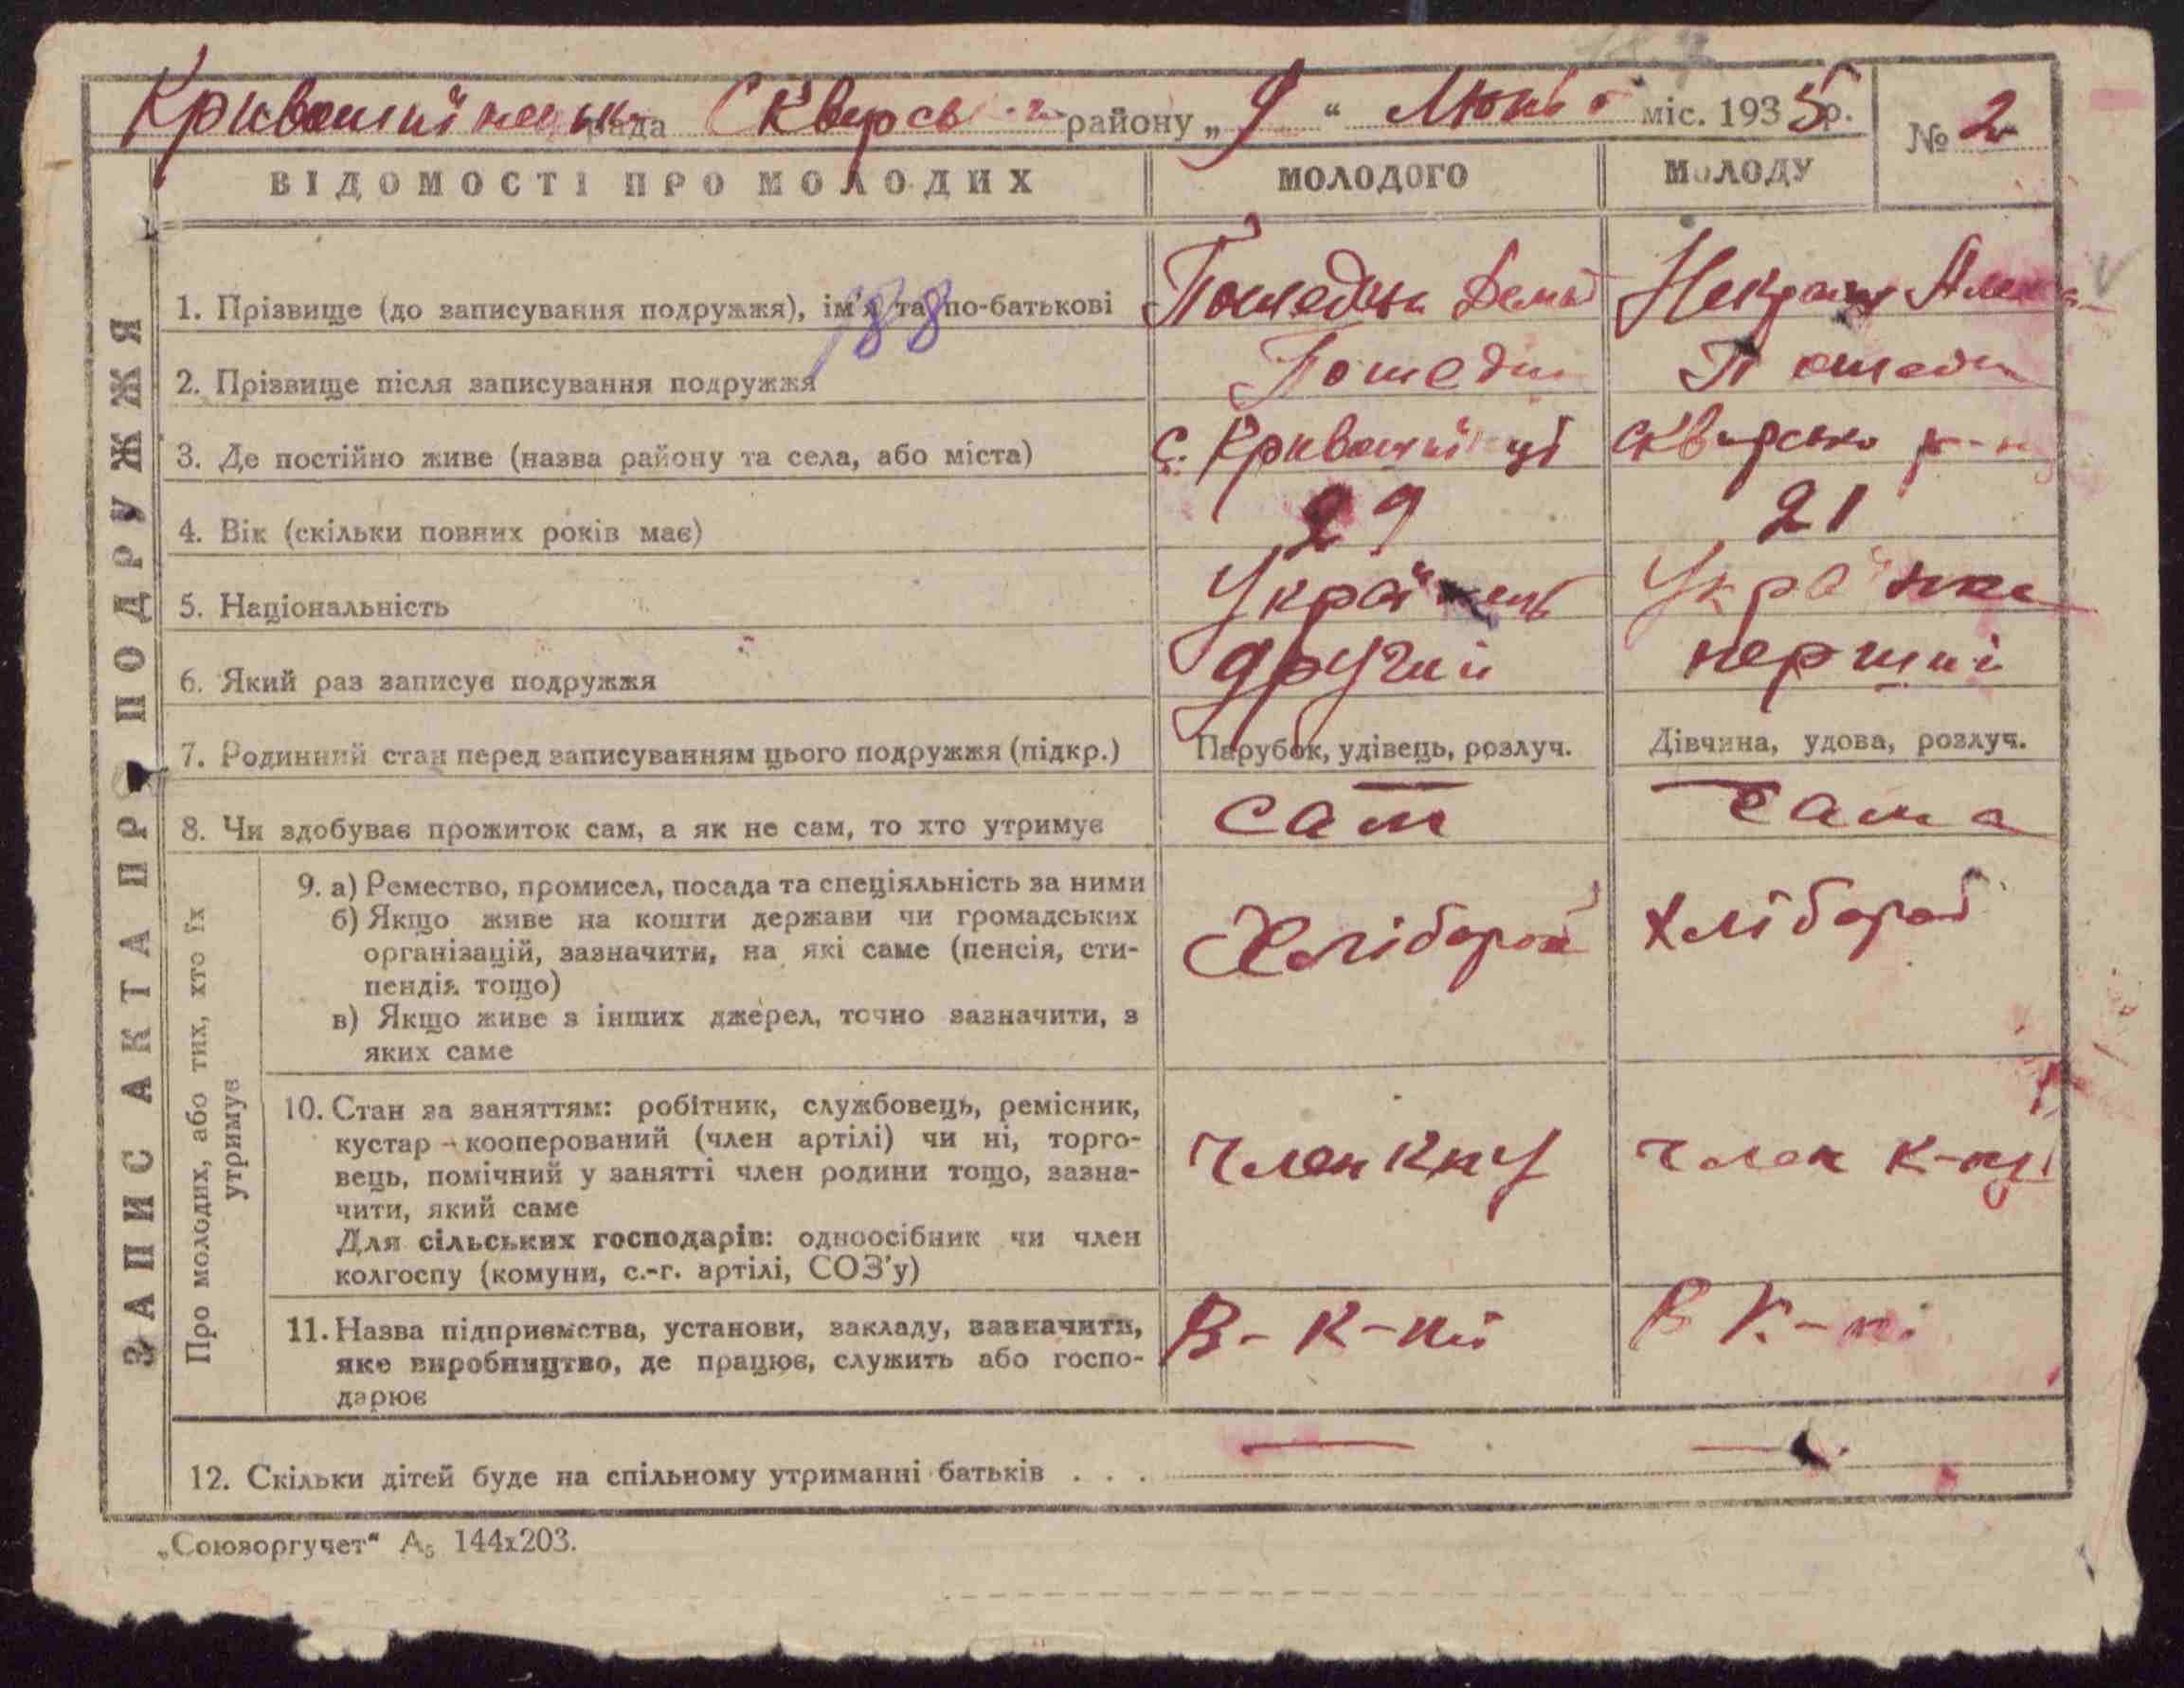 Кривошиїнецька рада Сквирськ району „9“ Лютого міс. 1935 р. № 2
ВІДОМОСТІ ПРО МОЛОДИХ МОЛОДОГО МОЛОДУ
1. Прізвище (до записування подружжя), ім'я та по-батькові
188
2. Прізвище після записування подружжя
3. Де постійно живе (назва району та села, або міста) с. Кривошиїнці Сквирсько р-ну
4. Вік (скільки повних років має) 29 21
5. Національність Українець Українка
6. Який раз записує подружжя другий перший
7. Родинний стан перед записуванням цього подружжя (підкр.) Парубок, удівець, розлуч. Дівчина, удова, розлуч.
8. Чи здобуває прожиток сам, а як не сам, то хто утримує сам сама
9. а) Ремество, промисел, посада та спеціяльність за ними
б) Якщо живе на кошти держави чи громадських
організацій, зазначити, на які саме (пенсія, сти-
пендія тощо)
в) Якщо живе з інших джерел, точно зазначити, з
яких саме
Хлібороб Хлібороб
10. Стан за заняттям: робітник, службовець, ремісник,
кустар - кооперований (член артілі) чи ні, торго-
вець, помічний у занятті член родини тощо, зазна-
чити, який саме
Для сільських господарів: одноосібник чи член
колгоспу (комуни, с.-г. артілі, СОЗ'у)
член член
11. Назва підприємства, установи, закладу, зазначити,
яке виробництво, де працює, служить або госпо-
дарює
12. Скільки дітей буде на спільному утриманні батьків . . . — —
ЗАПИС АКТА ПРО ПОДРУЖЖЯ
Про молодих, або тих, хто їх
утримує
„Союзоргучет“ А5 144х203.